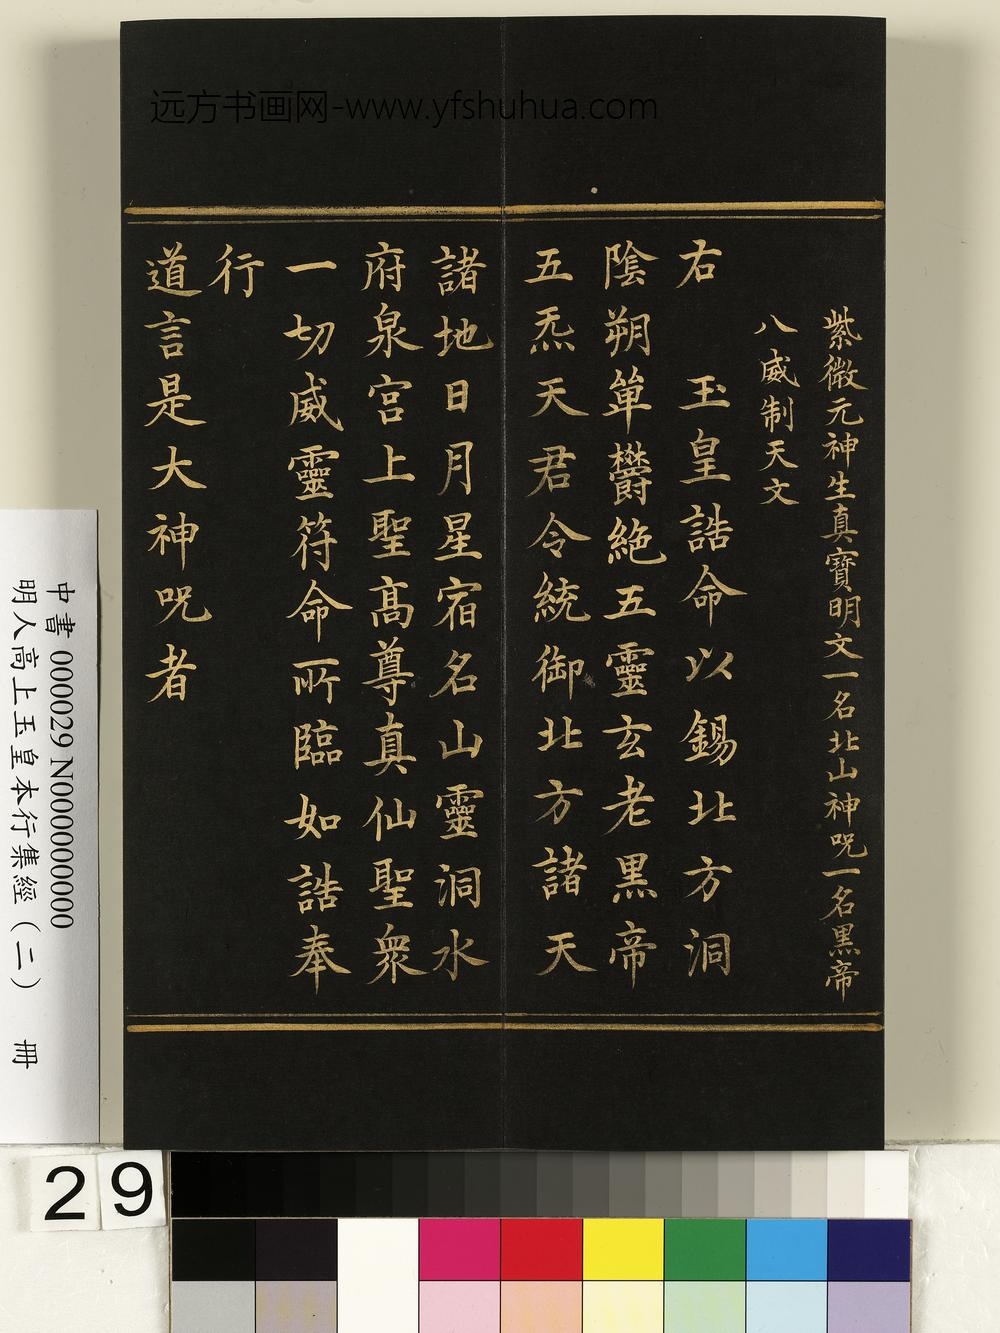 远方书画网-www.yfshuhua.com
紫微元神生真寶明文一名北山神咒一名黒帝
八威制天文
右　玉皇誥命以錫北方洞
陰朔單欝絶五靈玄老黒帝
五炁天君令統御北方諸天
諸地日月星宿名山靈洞水
府泉宫上聖髙尊真仙聖衆
一切威靈符命所臨如誥奉
行
道言是大神咒者
中書 000029 N000000000
明人高上玉皇本行集經（二）　冊
29